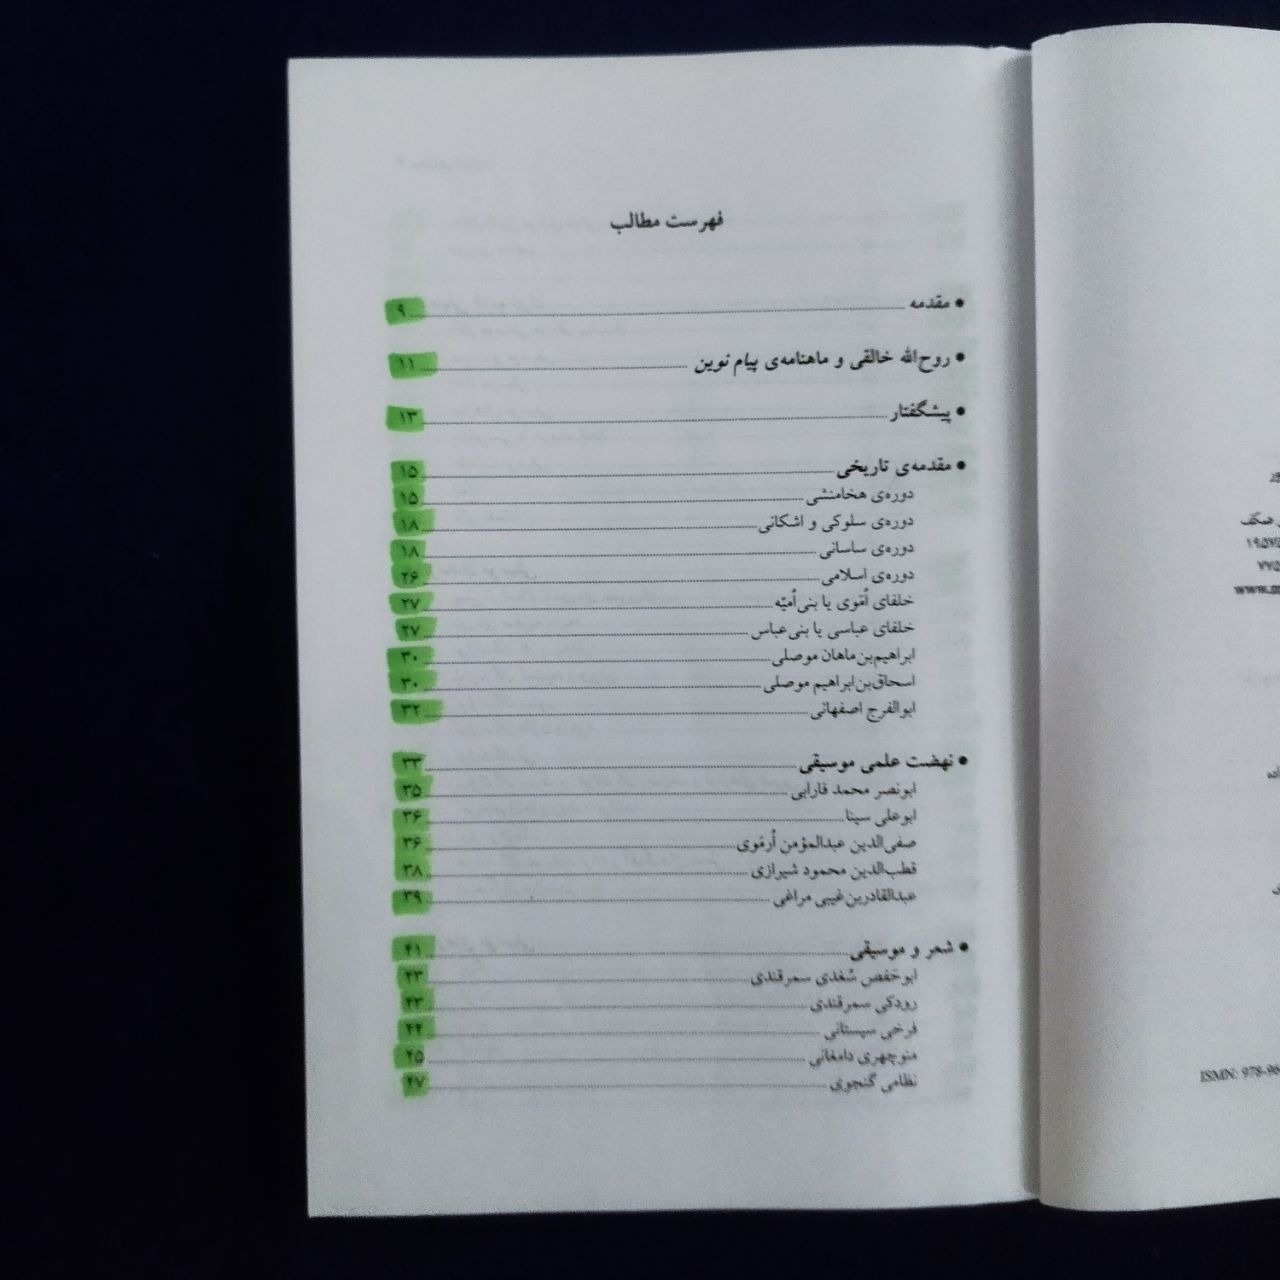 فهرست مطالب
• مقدمه ۹
• روح‌الله خالقی و ماهنامه‌ی پیام نوین ۱۱
• پیشگفتار ۱۳
• مقدمه‌ی تاریخی ۱۵
دوره‌ی هخامنشی ۱۵
دوره‌ی سلوکی و اشکانی ۱۸
دوره‌ی ساسانی ۱۸
دوره‌ی اسلامی ۲۶
خلفای اُمَوی یا بنی‌اُمیّه ۲۷
خلفای عباسی یا بنی‌عباس ۲۷
ابراهیم‌بن‌ماهان موصلی ۳۰
اسحاق‌بن‌ابراهیم موصلی ۳۰
ابوالفرج اصفهانی ۳۲
• نهضت علمی موسیقی ۳۳
ابونصر محمد فارابی ۳۵
ابوعلی سینا ۳۶
صفی‌الدین عبدالمؤمن اُرمَوی ۳۶
قطب‌الدین محمود شیرازی ۳۸
عبدالقادربن‌غیبی مراغی ۳۹
• شعر و موسیقی ۴۱
ابوحَفص سُغدی سمرقندی ۴۳
رودکی سمرقندی ۴۳
فرخی سیستانی ۴۴
منوچهری دامغانی ۴۵
نظامی گنجوی ۴۷
همکف
ISMN: 978-96